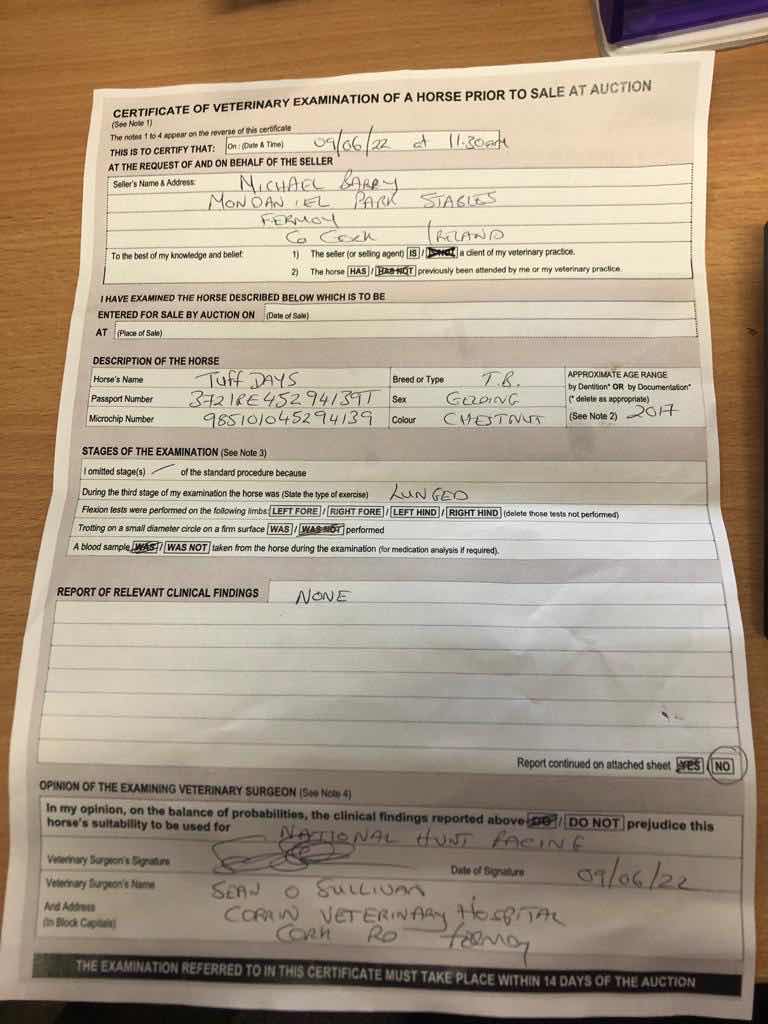 CERTIFICATE OF VETERINARY EXAMINATION OF A HORSE PRIOR TO SALE AT AUCTION
(See Note 1)
The notes 1 to 4 appear on the reverse of this certificate
THIS IS TO CERTIFY THAT: On : (Date & Time) 09/06/22 at 11.30am
AT THE REQUEST OF AND ON BEHALF OF THE SELLER
Seller's Name & Address: MICHAEL BARRY
MONDANIEL PARK STABLES
FERMOY
Co Cork IRELAND
To the best of my knowledge and belief: 1) The seller (or selling agent) IS / IS NOT a client of my veterinary practice.
2) The horse HAS / HAS NOT previously been attended by me or my veterinary practice.
I HAVE EXAMINED THE HORSE DESCRIBED BELOW WHICH IS TO BE
ENTERED FOR SALE BY AUCTION ON (Date of Sale)
AT (Place of Sale)
DESCRIPTION OF THE HORSE
Horse's Name Tuff DAYS Breed or Type T.B. APPROXIMATE AGE RANGE
by Dentition* OR by Documentation*
Passport Number 372IRE45294139T Sex GELDING (* delete as appropriate)
Microchip Number 985101045294139 Colour CHESTNUT (See Note 2) 2017
STAGES OF THE EXAMINATION (See Note 3)
I omitted stage(s) of the standard procedure because
During the third stage of my examination the horse was (State the type of exercise) LUNGED
Flexion tests were performed on the following limbs: LEFT FORE / RIGHT FORE / LEFT HIND / RIGHT HIND (delete those tests not performed)
Trotting on a small diameter circle on a firm surface WAS / WAS NOT performed
A blood sample WAS / WAS NOT taken from the horse during the examination (for medication analysis if required).
REPORT OF RELEVANT CLINICAL FINDINGS NONE
Report continued on attached sheet YES / NO
OPINION OF THE EXAMINING VETERINARY SURGEON (See Note 4)
In my opinion, on the balance of probabilities, the clinical findings reported above DO / DO NOT prejudice this
horse's suitability to be used for NATIONAL HUNT RACING
Veterinary Surgeon's Signature Date of Signature 09/06/22
Veterinary Surgeon's Name SEAN O SULLIVAN
And Address CORRIN VETERINARY HOSPITAL
(In Block Capitals) CORK RD FERMOY
THE EXAMINATION REFERRED TO IN THIS CERTIFICATE MUST TAKE PLACE WITHIN 14 DAYS OF THE AUCTION